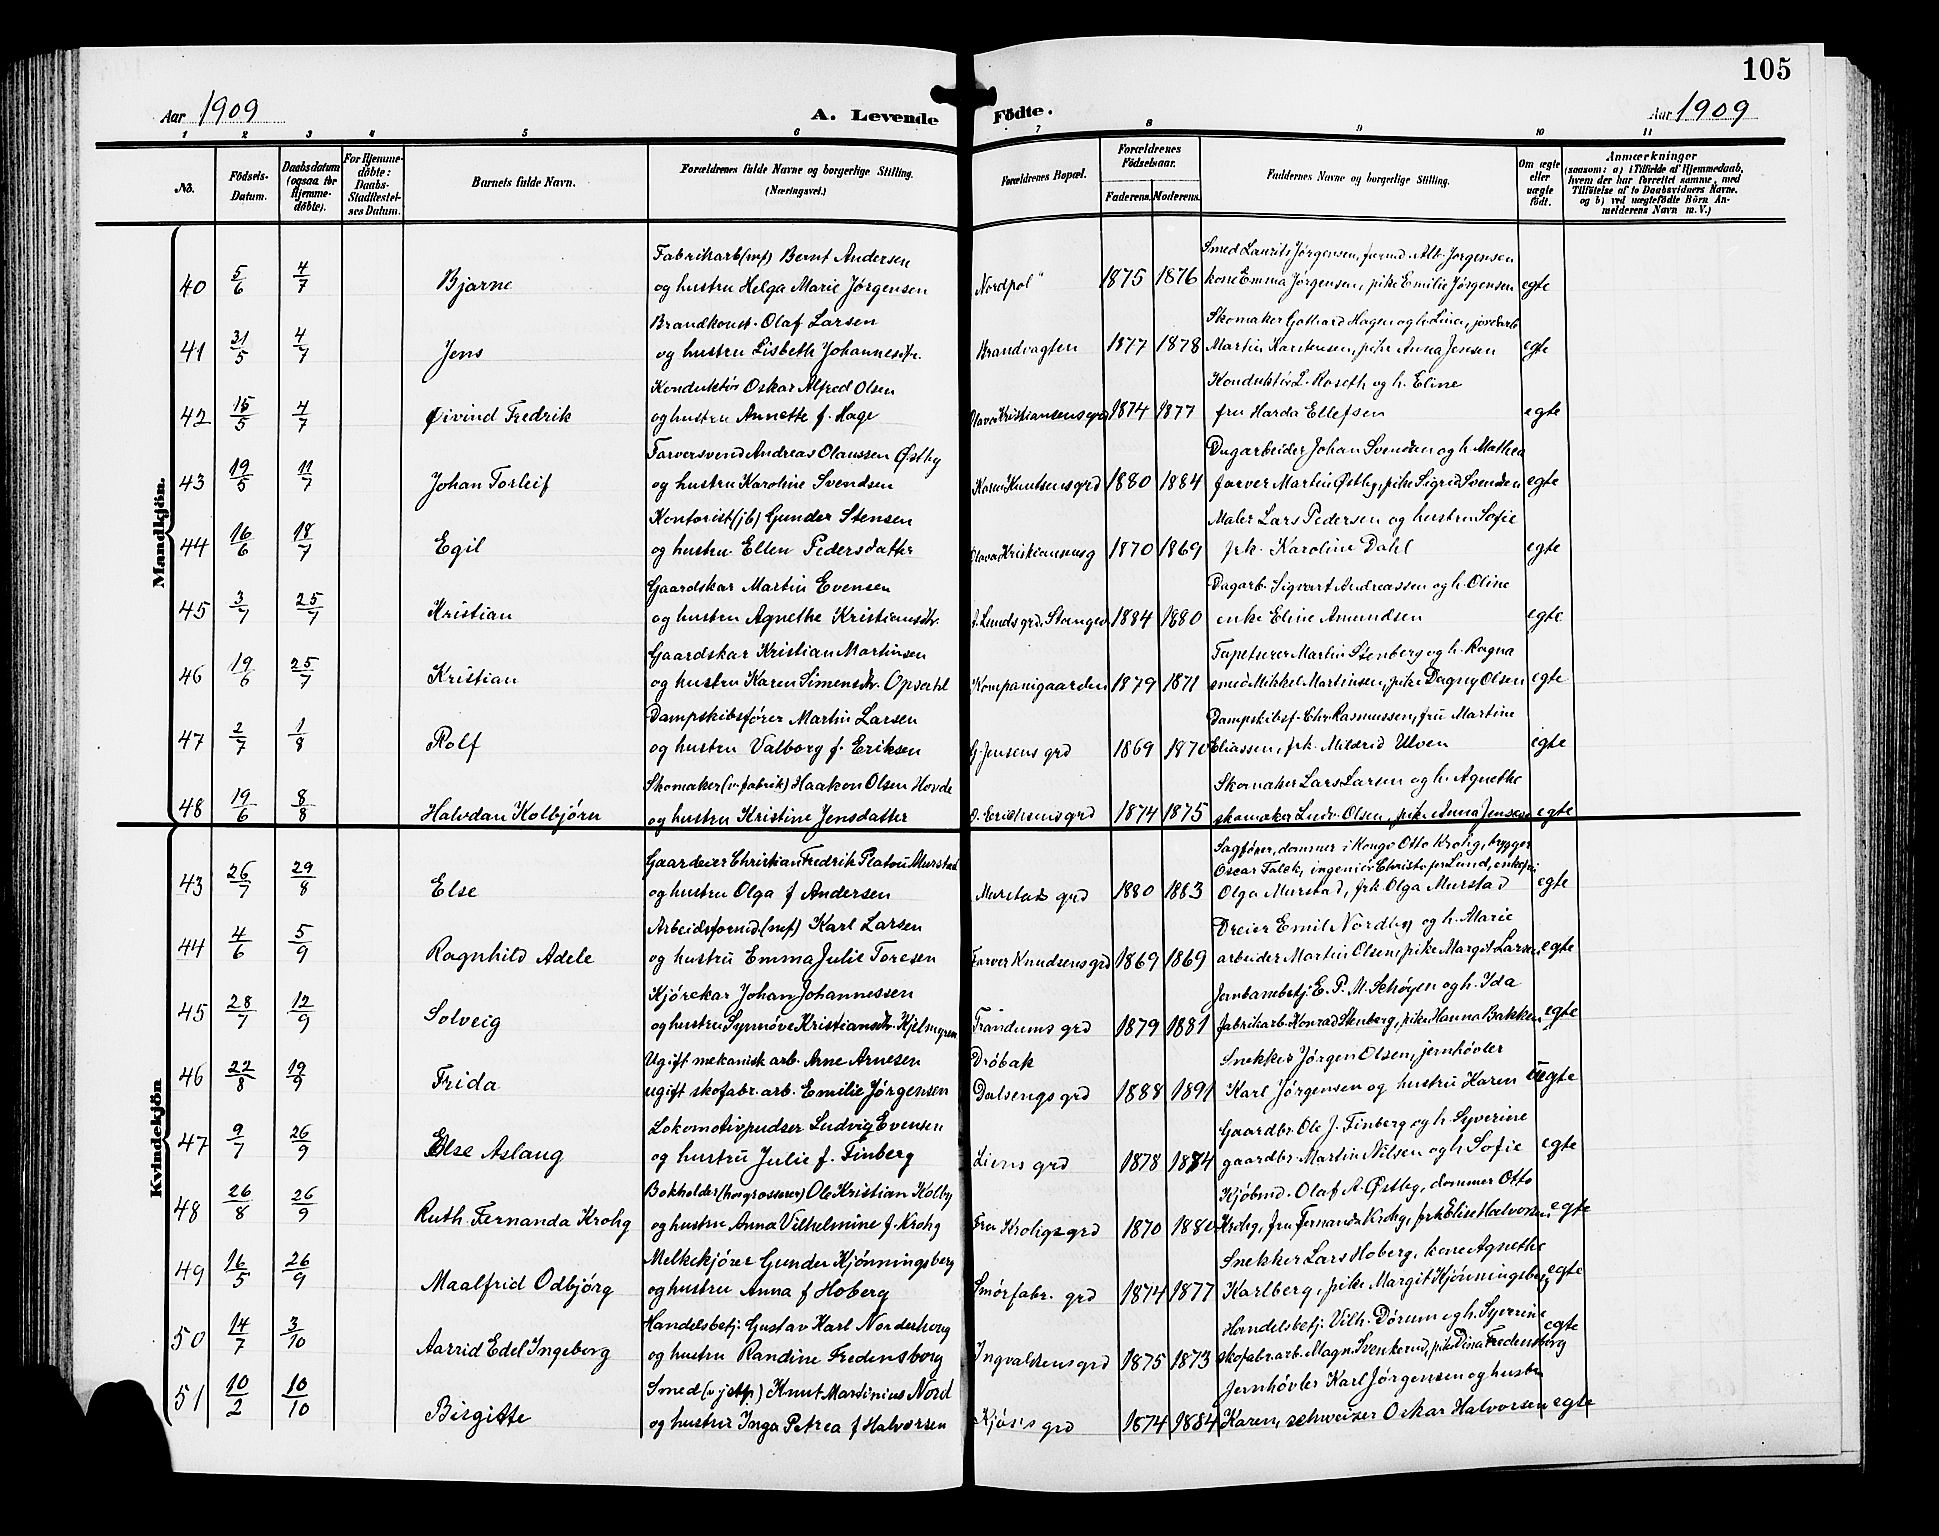 105
Aar 1909
A. Levende Födte.
Aar 1909
1 2 3 4 5 6 7 8 9 10 11
No. Födsels-Datum. Daabsdatum (ogsaa for Hjemme-döbte). For Hjemme-döbte: Daabs-Stadfæstel-ses Datum. Barnets fulde Navn. Forældrenes fulde Navne og borgerlige Stilling. (Næringsvei.) Forældrenes Bopæl. Forældrenes Födselsaar. Faderens. Moderens. Faddernes Navne og borgerlige Stilling. Om ægte eller uægte födt. Anmærkninger (saasom: a) i Tilfælde af Hjemmedaab, hvem der har forrettet samme, med Tilföielse af to Daabsvidners Navne. og b) ved uægtefödte Börn An-melderens Navn m. V.)
Mandkjön.
Fabrikarb (mf) Bernt Andersen Smed Laurits Jørgensen, formd Alb. Jørgensen
40 5/6 4/7 Bjarne og hustru Helga Marie Jørgensen Nordpol" 1875 1876 kone Emma Jørgensen, pike Emilie Jørgensen egte
Brandkonst. Olaf Larsen Skomaker Gothard Hagen og h. Lina, jordarb
41 31/5 4/7 Jens og hustru Lisbeth Johannesdtr. Brandvagten 1877 1878 Martin Karstensen, pike Anna Jensen egte
Konduktör Oskar Alfred Olsen Konduktör L. Roseth og h. Eline
42 15/5 4/7 Øivind Fredrik og hustru Annette f. Hage Olava Kristiansens grd 1874 1877 fru Harda Ellefsen egte
Farversvend Andreas Olaussen Østby Dagarbeider Johan Svendsen og h. Mathea
43 19/5 11/7 Johan Torleif og hustru Karoline Svendsen Karen Knutsens grd 1880 1884 farver Martin Østby, pike Sigrid Svendsen egte
Kontorist (jb) Gunder Stensen Maler Lars Pedersen og hustru Sofie
44 16/6 18/7 Egil og hustru Ellen Pedersdatter Olava Kristiansens g 1870 1869 frk. Karoline Dahl egte
Gaardskar Martin Evensen Dagarb. Sigvart Andreassen og h. Oline
45 3/7 25/7 Kristian og hustru Agnethe Kristiansdtr. A. Lunds grd. Stangev 1884 1880 enke Eline Amundsen egte
Gaardskar Kristian Martinsen Tapetserer Martin Stenberg og h. Ragna
46 19/6 25/7 Kristian og hustru Karen Simensdtr. Opsahl Kompanigaarden 1879 1871 smed Mikkel Martinsen, pike Dagny Olsen egte
Dampskibsfører Martin Larsen Dampskibsf. Chr Rasmussen, fru Martine
47 2/7 1/8 Rolf og hustru Valborg f. Eriksen G. Jensens grd 1869 1870 Eliassen, frk. Mildrid Ulven egte
Skomaker (v. fabrik) Haakon Olsen Hovde Skomaker Lars Larsen og h. Agnethe
48 19/6 8/8 Halvdan Kolbjörn og hustru Kristine Jensdatter O. Erichsens grd 1874 1875 skomaker Ludv. Olsen, pike Anna Jensen egte
Kvindekjön
Gaardeier Christian Fredrik Platou Murstad Sagfører, dommer i Kongo Otto Krohg, brygger
Oscar Falck, ingeniör Christofer Lund, enkefru
43 26/7 29/8 Else og hustru Olga f Andersen Murstads grd 1880 1883 Olga Murstad, frk Olga Murstad egte
Arbeidsformd (mf) Karl Larsen Dreier Emil Nordby og h. Marie
44 4/6 5/9 Ragnhild Adele og hustru Emma Julie Toresen Farver Knudsens grd 1869 1869 arbeider Martin Olsen, pike Margit Larsen egte
Kjörekar Johan Johannessen Jernbanebetj. E. P. M. Schøyen og h. Ida
45 28/7 12/9 Solveig og hustru Synnöve Kristiansdtr. Hjelmgren Trandums grd 1879 1881 fabrikarb. Konrad Stenberg, pike Hanna Bakken egte
Ugift mekanisk arb. Arne Arnesen Dröbak Snekker Jörgen Olsen, jernhövler
46 22/8 19/9 Frida ugift skofabr. arb. Emilie Jörgensen Dalsengs grd 1888 1891 Karl Jörgensen og hustru Karen uegte
Lokomotivpudser Ludvig Evensen Gaardbr. Ole J. Finberg og h Syverine
47 9/7 26/9 Else Aslaug og hustru Julie f. Finberg Liens grd 1878 1884 gaardbr. Martin Nilsen og h Sofie egte
Bokholder (hos grosserer) Ole Kristian Kolby Kjöbmd. Olaf A. Østby, dommer Otto
48 26/8 26/9 Ruth Fernanda Krohg og hustru Anna Vilhelmine f. Krohg Fru Krohgs grd 1870 1880 Krohg, fru Fernanda Krohg, frk Elise Halvorsen egte
Melkekjörer Gunder Kjönningsberg Snekker Lars Hoberg, kone Agnethe
49 16/5 26/9 Maalfrid Odbjörg og hustru Anna f Hoberg Smörfabr. grd 1874 1877 Karlberg, pike Margit Kjönningsberg egte
Handelsbetj. Gustav Karl Norderhoug Handelsbetj. Vilh. Dörum og h. Syverine
50 14/7 3/10 Aarrid Edel Ingeborg og hustru Randine Fredensborg Ingvaldsens grd 1875 1873 skofabr. arb. Magn. Svenkerud, pike Dina Fredensborg egte
Smed (v jstp.) Knut Martinius Nord Jernhövler Karl Jörgensen og hustru
51 10/2 10/10 Birgitte og hustru Inga Petrea f Halvorsen Kjös's grd 1874 1884 Karen, schweizer Oskar Halvorsen egte